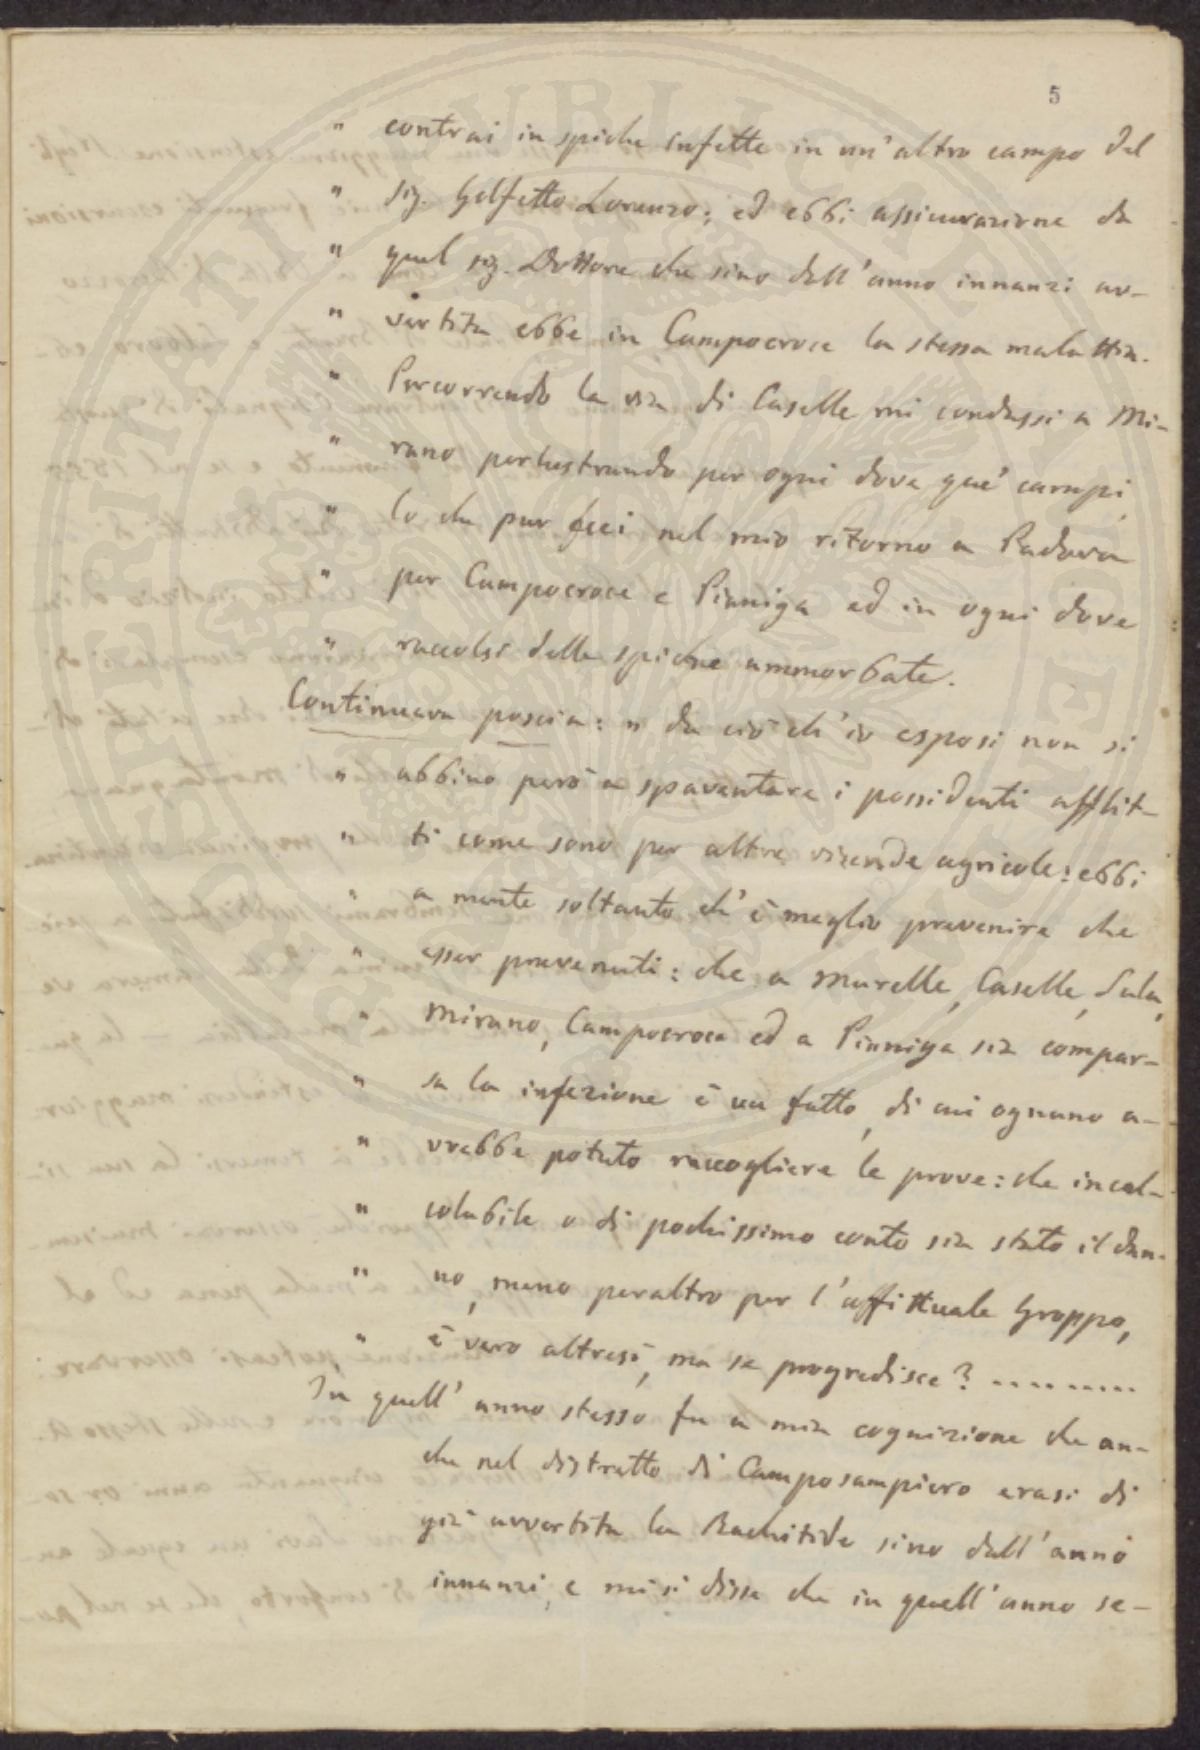 5
" contrai in spiche infette in un' altro campo del
" Sig. Gelfetto Lorenzo; ed ebbi assicurazione da
" quel sig. Dottore che sino dall' anno innanzi av-
" vertita ebbe in Campocroce la stessa malattia.
" Percorrendo la via di Caselle mi condussi a Mi-
" rano perlustrando per ogni dove que' campi,
" lo che pur feci nel mio ritorno a Padova
" per Campocroce e Pianiga ed in ogni dove
" raccolsi delle spiche ammorbate.
Continuava poscia: " da ciò ch' io esposi non si
" abbino però a spaventare i possidenti afflit-
" ti come sono per altre vicende agricole: ebbi
" a mente soltanto ch' è meglio prevenire che
" esser prevenuti: che a Murelle, Caselle, Sala,
" Mirano, Campocroce ed a Pianiga sia compar-
" sa la infezione è un fatto, di cui ognuno a-
" vrebbe potuto raccogliere le prove: che incal-
" colabile o di pochissimo conto sia stato il dan-
" no, meno peraltro per l' affittuale Groppo,
" è vero altresì, ma se progredisce? .........
In quell' anno stesso fu a mia cognizione che an-
che nel distretto di Camposampiero erasi di
già avvertita la Rachitide sino dall' anno
innanzi, e mi si disse che in quell' anno se-